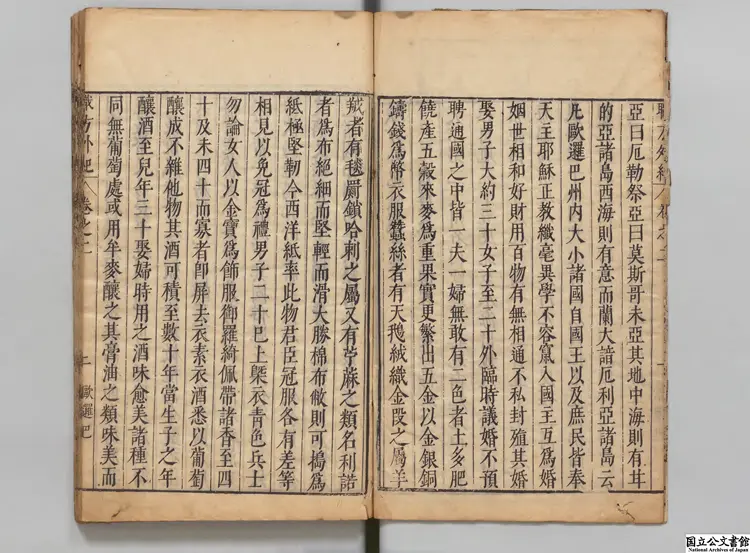 職方外紀 卷之二
亞曰厄勒祭亞曰莫斯哥未亞其地中海則有甘
的亞諸島西海則有意而蘭大諳厄利亞諸島云
凡歐邏巴州內大小諸國自國王以及庶民皆奉
天主耶穌正教纖毫異學不容竄入國主互爲婚
姻世相和好財用百物有無相通不私封殖其婚
娶男子大約三十女子至二十外臨時議婚不預
聘通國之中皆一夫一婦無敢有二色者土多肥
饒產五穀來麥爲重果實更繁出五金以金銀銅
鑄錢爲幣衣服蠶絲者有天鵝絨織金段之屬羊
羢者有毯罽鎖哈刺之屬又有苧蔴之類名利諾
者爲布絕細而堅輕而滑大勝棉布敝則可搗爲
紙極堅韌今西洋紙率此物君臣冠服各有差等
相見以免冠爲禮男子二十巳上槩衣青色兵士
勿論女人以金寶爲飾服御羅綺佩帶諸香至四
十及未四十而寡者卽屏去衣素衣酒悉以葡萄
釀成不雜他物其酒可積至數十年當生子之年
釀酒至兒年三十娶婦時用之酒味愈美諸種不
同無葡萄處或用牟麥釀之其膏油之類味美而
職方外紀 卷之二 二 歐邏巴
国立公文書館
National Archives of Japan